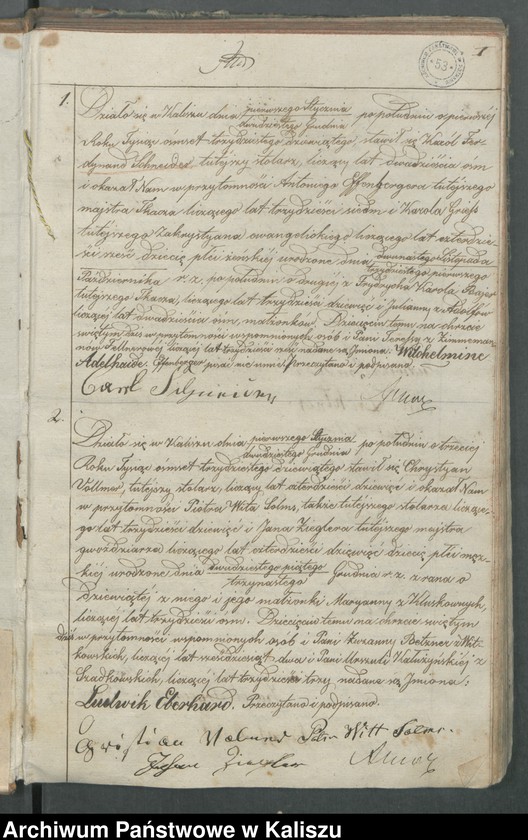 1
53
1.
Działo się w Kaliszu dnia pierwszego Stycznia / dwudziestego Grudnia po południu o pierwszej
Roku Tysiąc ośmset trzydziestego dziewiątego, stawił się Karól Fer-
dynand Schneider tutejszy stolarz, liczący lat dwadzieścia ośm
i okazał Nam w przytomności Antoniego Effenbergera tutejszego
majstra Tkacza liczącego lat trzydzieści siedm i Karola
tutejszego Zakrystyana ewangelickiego liczącego lat czterdzie-
ści sześć dziecię płci żeńskiej urodzone dnia dwunastego Listopada / trzydziestego pierwszego
Października r. z. po południu o drugiej z Frydrycha Karola
tutejszego Tkacza, liczącego lat trzydzieści dziewięć i Julianny z Adolfów
liczącej lat dwadzieścia ośm, małżonków. Dziecięciu temu na chrzcie
świętym dziś w przytomności wspomnionych osób i Pani Teresy z Zimmerma-
nów liczącej lat trzydzieści nadane są Imiona: Wilhelmine
Adelhaide. Effenberger pisać nie umie. Przeczytano i podpisano.
Carl Schneider
2.
Działo się w Kaliszu dnia pierwszego Stycznia / dwudziestego Grudnia po południu o trzeciej
Roku Tysiąc ośmset trzydziestego dziewiątego stawił się Chrystyan
Vollmer, tutejszy stolarz, liczący lat czterdzieści dziewięć i okazał Nam
w przytomności Piotra Wita Solms, także tutejszego stolarza liczące-
go lat trzydzieści dziewięć i Jana Zieglera tutejszego majstra
gwoździarza liczącego lat czterdzieści dziewięć dziecię płci męz-
kiej urodzone dnia dwudziestego piątego / trzynastego Grudnia r. z. z rana o
dziewiątej z niego i jego małżonki Maryanny z Kluskownych,
liczącej lat trzydzieści ośm. Dziecięciu temu na chrzcie świętym
dziś w przytomności wspomnionych osób i Pani Zuzanny Betzner z Wit-
kowskich, liczącej lat sześćdziesiąt dwa i Pani Urszuli Kałużyńskiej z
Szadkowskich, liczącej lat trzydzieści trzy nadane są Imiona:
Ludwik Eberhard. Przeczytano i podpisano.
Christian Peter Witt Solms.
Johan Ziegler
Archiwum Państwowe w Kaliszu